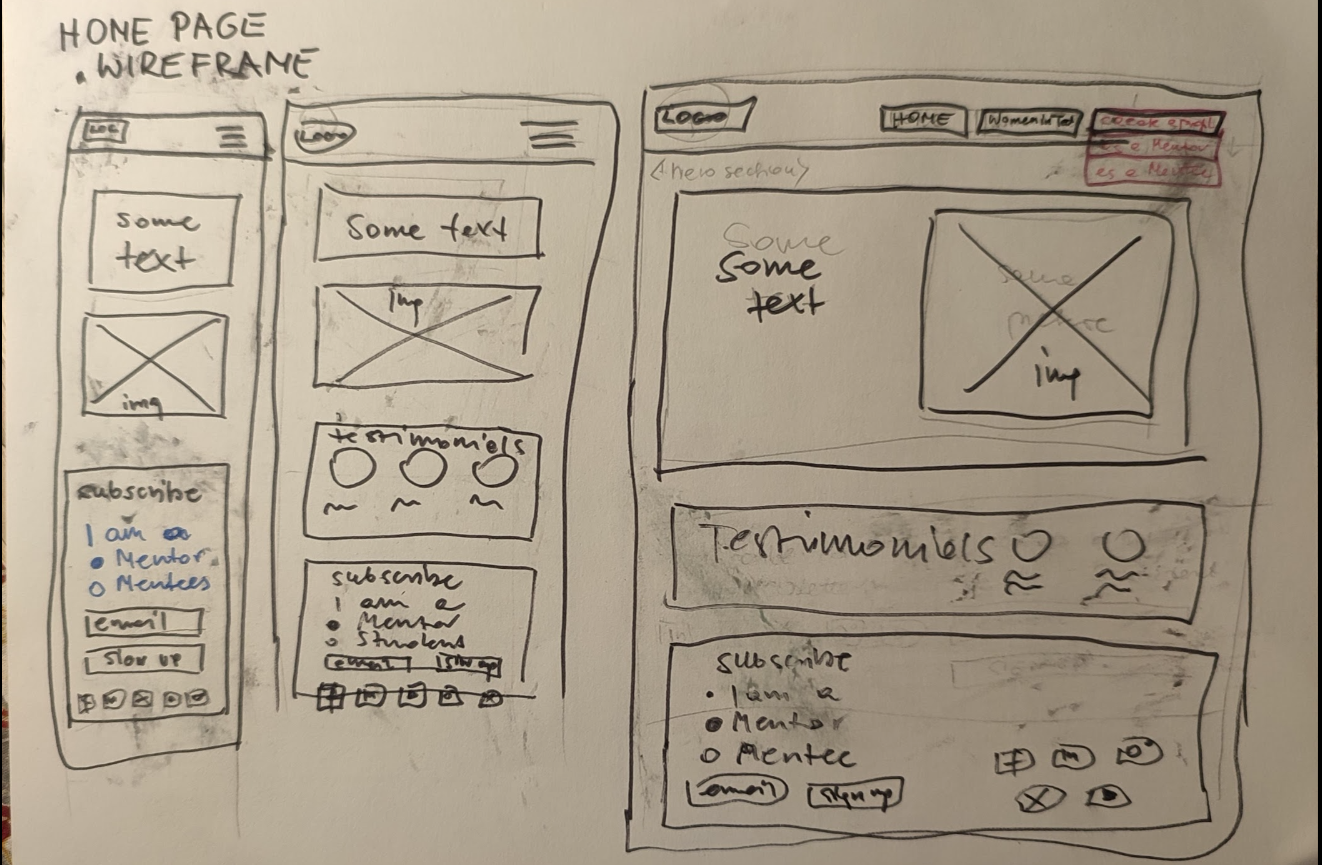 HOME PAGE
. WIREFRAME
LOG
some
text
img
subscribe
I am a
Mentor
Mentees
email
sign up
LOGO
some text
img
testimomiels
subscribe
I am a
Mentor
Student
email
sign up
LOGO
HOME
WomenInTech
create a profil
as a Mentor
as a Mentee
<hero section>
Some
Some
text
some
picture
img
Testimomiels
subscribe
I am a
Mentor
Mentee
email
sign up